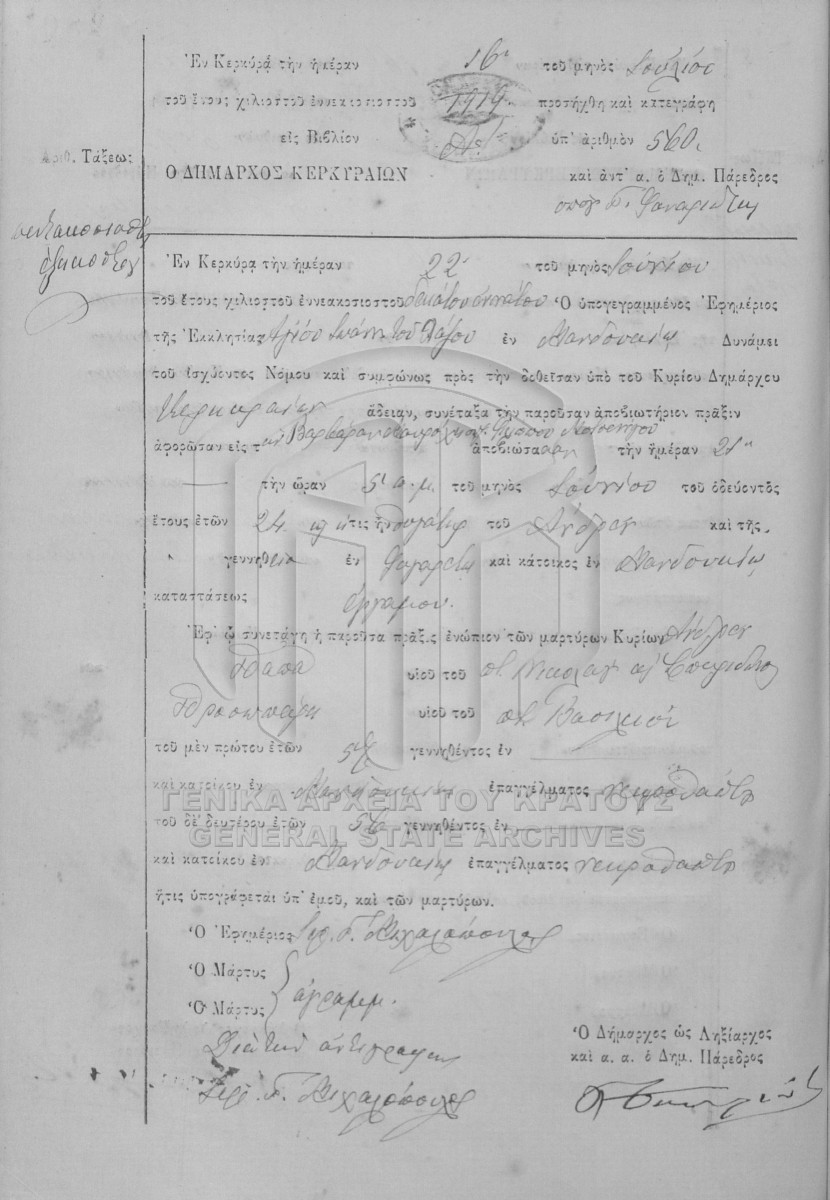 Ἐν Κερκύρᾳ τὴν ἡμέραν 16 τοῦ μηνὸς Ἰουλίου
τοῦ ἔτους χιλιοστοῦ ἐννεακοσιοστοῦ 1919 προσήχθη καὶ κατεγράφη
εἰς Βιβλίον ὑπ' ἀριθμὸν 560
Ἀριθ. Τάξεως
Ὁ ΔΗΜΑΡΧΟΣ ΚΕΡΚΥΡΑΙΩΝ καὶ ἀντ' α. ὁ Δημ. Πάρεδρος
Ἐν Κερκύρᾳ τὴν ἡμέραν 22 τοῦ μηνὸς Ἰουνίου
τοῦ ἔτους χιλιοστοῦ ἐννεακοσιοστοῦ δεκάτου ἐννάτου Ὁ ὑπογεγραμμένος Ἐφημέριος
τῆς Ἐκκλησίας Ἁγίου Ἰωάννου τοῦ ἐν Μανδουκίῳ Δυνάμει
τοῦ ἰσχύοντος Νόμου καὶ συμφώνως πρὸς τὴν δοθεῖσαν ὑπὸ τοῦ Κυρίου Δημάρχου
Κερκυραίων ἄδειαν, συνέταξα τὴν παροῦσαν ἀποβιωτήριον πρᾶξιν
ἀφορῶσαν εἰς τὴν Βαρβάραν ἀποβιώσασαν τὴν ἡμέραν 21
τὴν ὥραν 5 π.μ. τοῦ μηνὸς Ἰουνίου τοῦ ὁδεύοντος
ἔτους ἐτῶν 24 ἥτις ἦν θυγάτηρ τοῦ Ἀνδρέα καὶ τῆς
γεννηθεῖσα ἐν καὶ κάτοικος ἐν Μανδουκίῳ
καταστάσεως ἐγγάμου.
Ἐφ' ᾧ συνετάγη ἡ παροῦσα πρᾶξις ἐνώπιον τῶν μαρτύρων Κυρίων Ἀνδρέα
Παπᾶ υἱοῦ τοῦ π. Νικολάου καὶ Σπυρίδωνος
υἱοῦ τοῦ π. Βασιλείου
τοῦ μὲν πρώτου ἐτῶν γεννηθέντος ἐν
καὶ κατοίκου ἐν Μανδουκίῳ ἐπαγγέλματος νεκροθάπτου
τοῦ δὲ δευτέρου ἐτῶν 56 γεννηθέντος ἐν
καὶ κατοίκου ἐν Μανδουκίῳ ἐπαγγέλματος νεκροθάπτου
ἥτις ὑπογράφεται ὑπ' ἐμοῦ, καὶ τῶν μαρτύρων.
Ὁ Ἐφημέριος
Ὁ Μάρτυς
Ὁ Μάρτυς
ἀγράμμ.
Ὁ Δήμαρχος ὡς Ληξίαρχος
καὶ α. α. ὁ Δημ. Πάρεδρος
ΓΕΝΙΚΑ ΑΡΧΕΙΑ ΤΟΥ ΚΡΑΤΟΥΣ
GENERAL STATE ARCHIVES